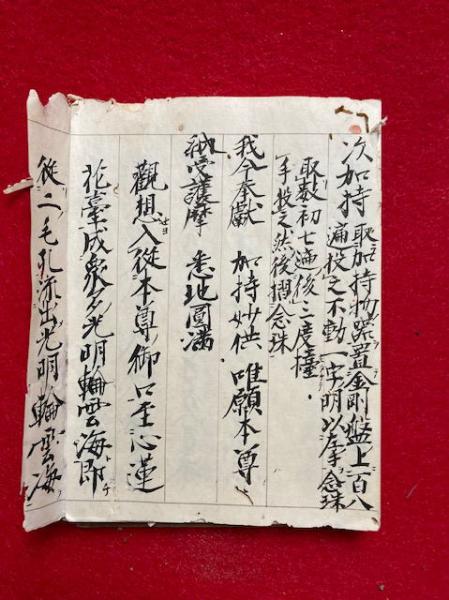 次加持 取加持物器置金剛盤上百八
遍投之不動一字明以左手念珠
取数初七遍後二三度檀
手投之然後摺念珠
我今奉獻 加持妙供 唯願本尊
護摩 悉地圓滿
觀想 入從本尊御口至心蓮
花臺成衆多光明輪雲海即
從一々毛孔流出光明輪雲海